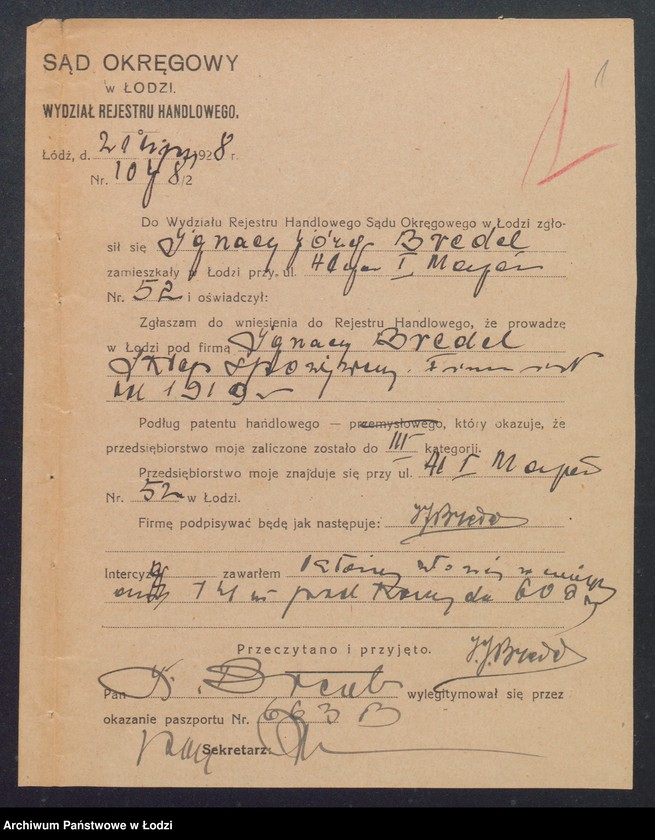 SĄD OKRĘGOWY
w ŁODZI.
WYDZIAŁ REJESTRU HANDLOWEGO.
1
Łódź, d. 21 lipca 1928 r.
Nr. 10478/2
Do Wydziału Rejestru Handlowego Sądu Okręgowego w Łodzi zgło-
sił się Ignacy Józef Bredel
zamieszkały w Łodzi przy ul. I Maja
Nr. 52 i oświadczył:
Zgłaszam do wniesienia do Rejestru Handlowego, że prowadzę
w Łodzi pod firmą Ignacy Bredel
Sklep spożywczy. Firma
1919
Podług patentu handlowego — przemysłowego, który okazuje, że
przedsiębiorstwo moje zaliczone zostało do III kategorji.
Przedsiębiorstwo moje znajduje się przy ul. Al I Maja
Nr. 52 w Łodzi.
Firmę podpisywać będę jak następuje: I.J. Bredel
Intercyzę zawarłem
Przeczytano i przyjęto. I.J. Bredel
Pan wylegitymował się przez
okazanie paszportu Nr. 663
Sekretarz:
Archiwum Państwowe w Łodzi